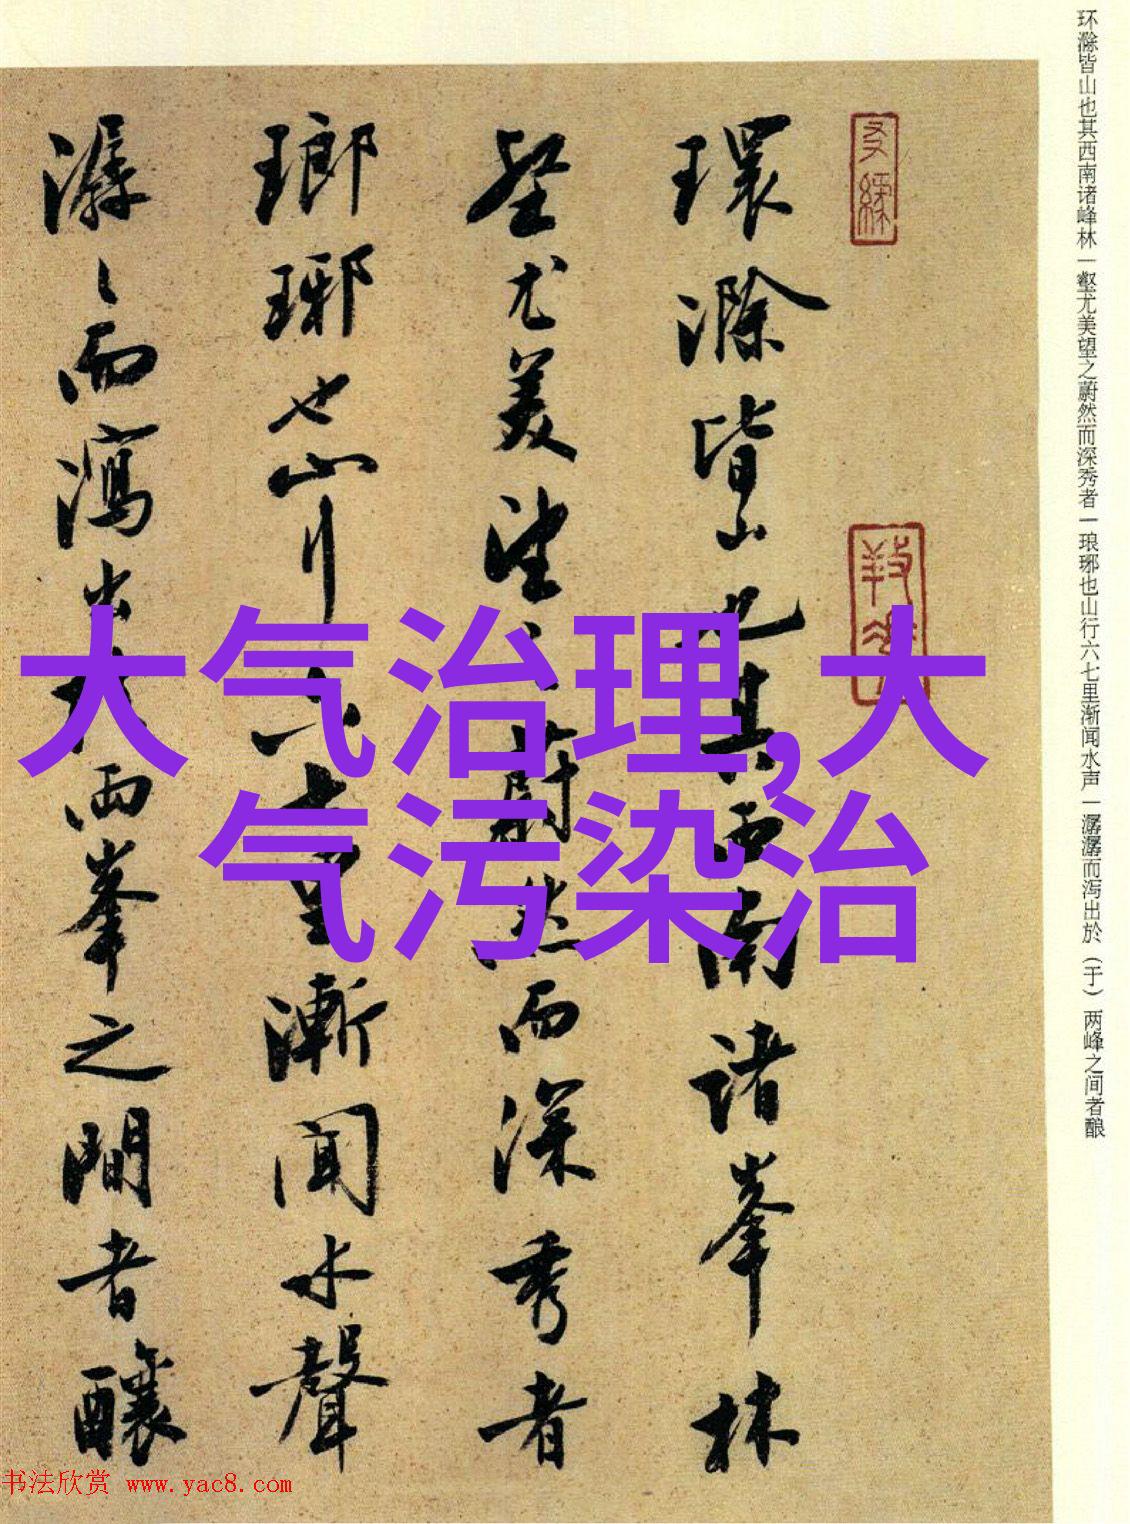 环滁皆山也其西南诸峰林一壑尤美望之蔚然而深秀者一琅琊也山行六七里渐闻水声一潺潺而泻出於（于）两峰之间者酿
環滁皆山也其西南诸峯林
壑尤美望之蔚然而深秀者
瑯琊也山行六七里漸闻水聲
潺〻而瀉出於两峯之間者釀
大气治理,大
气污染治
书法欣赏 www.yac8.com